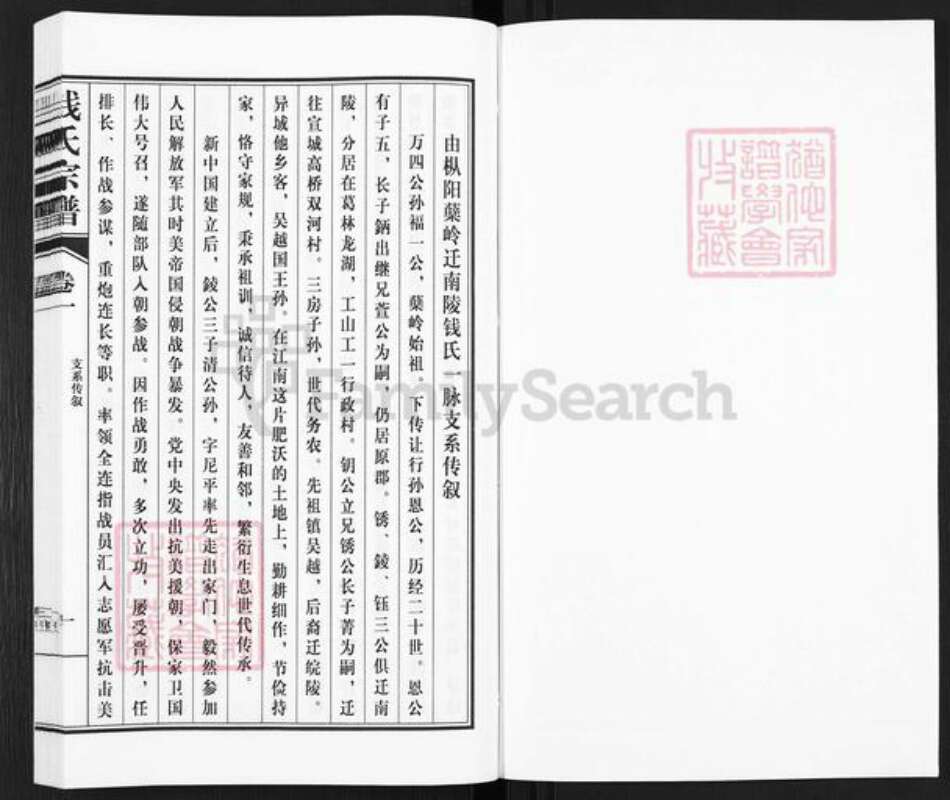 由枞阳蘽岭迁南陵钱氏一脉支系传叙
万四公孙福一公，蘽岭始祖，下传让行孙恩公，历经二十世。恩公
有子五，长子鈵出继兄萱公为嗣，仍居原郡。锈、錂、钰三公俱迁南
陵，分居在葛林龙湖，工山工一行政村。钥公立兄锈公长子菁为嗣，迁
往宣城高桥双河村。三房子孙，世代务农。先祖镇吴越，后裔迁皖陵。
异域他乡客，吴越国王孙，在江南这片肥沃的土地上，勤耕细作，节俭持
家，恪守家规，秉承祖训，诚信待人，友善和邻，繁衍生息世代传承。
新中国建立后，錂公三子清公孙，字尼平率先走出家门，毅然参加
人民解放军其时美帝国侵朝战争暴发。党中央发出抗美援朝，保家卫国
伟大号召，遂随部队入朝参战。因作战勇敢，多次立功，屡受晋升，任
排长、作战参谋，重炮连长等职。率领全连指战员汇入志愿军抗击美
钱氏宗谱
卷一
支系传叙
一
猶他家
譜學會
收藏
FamilySearch